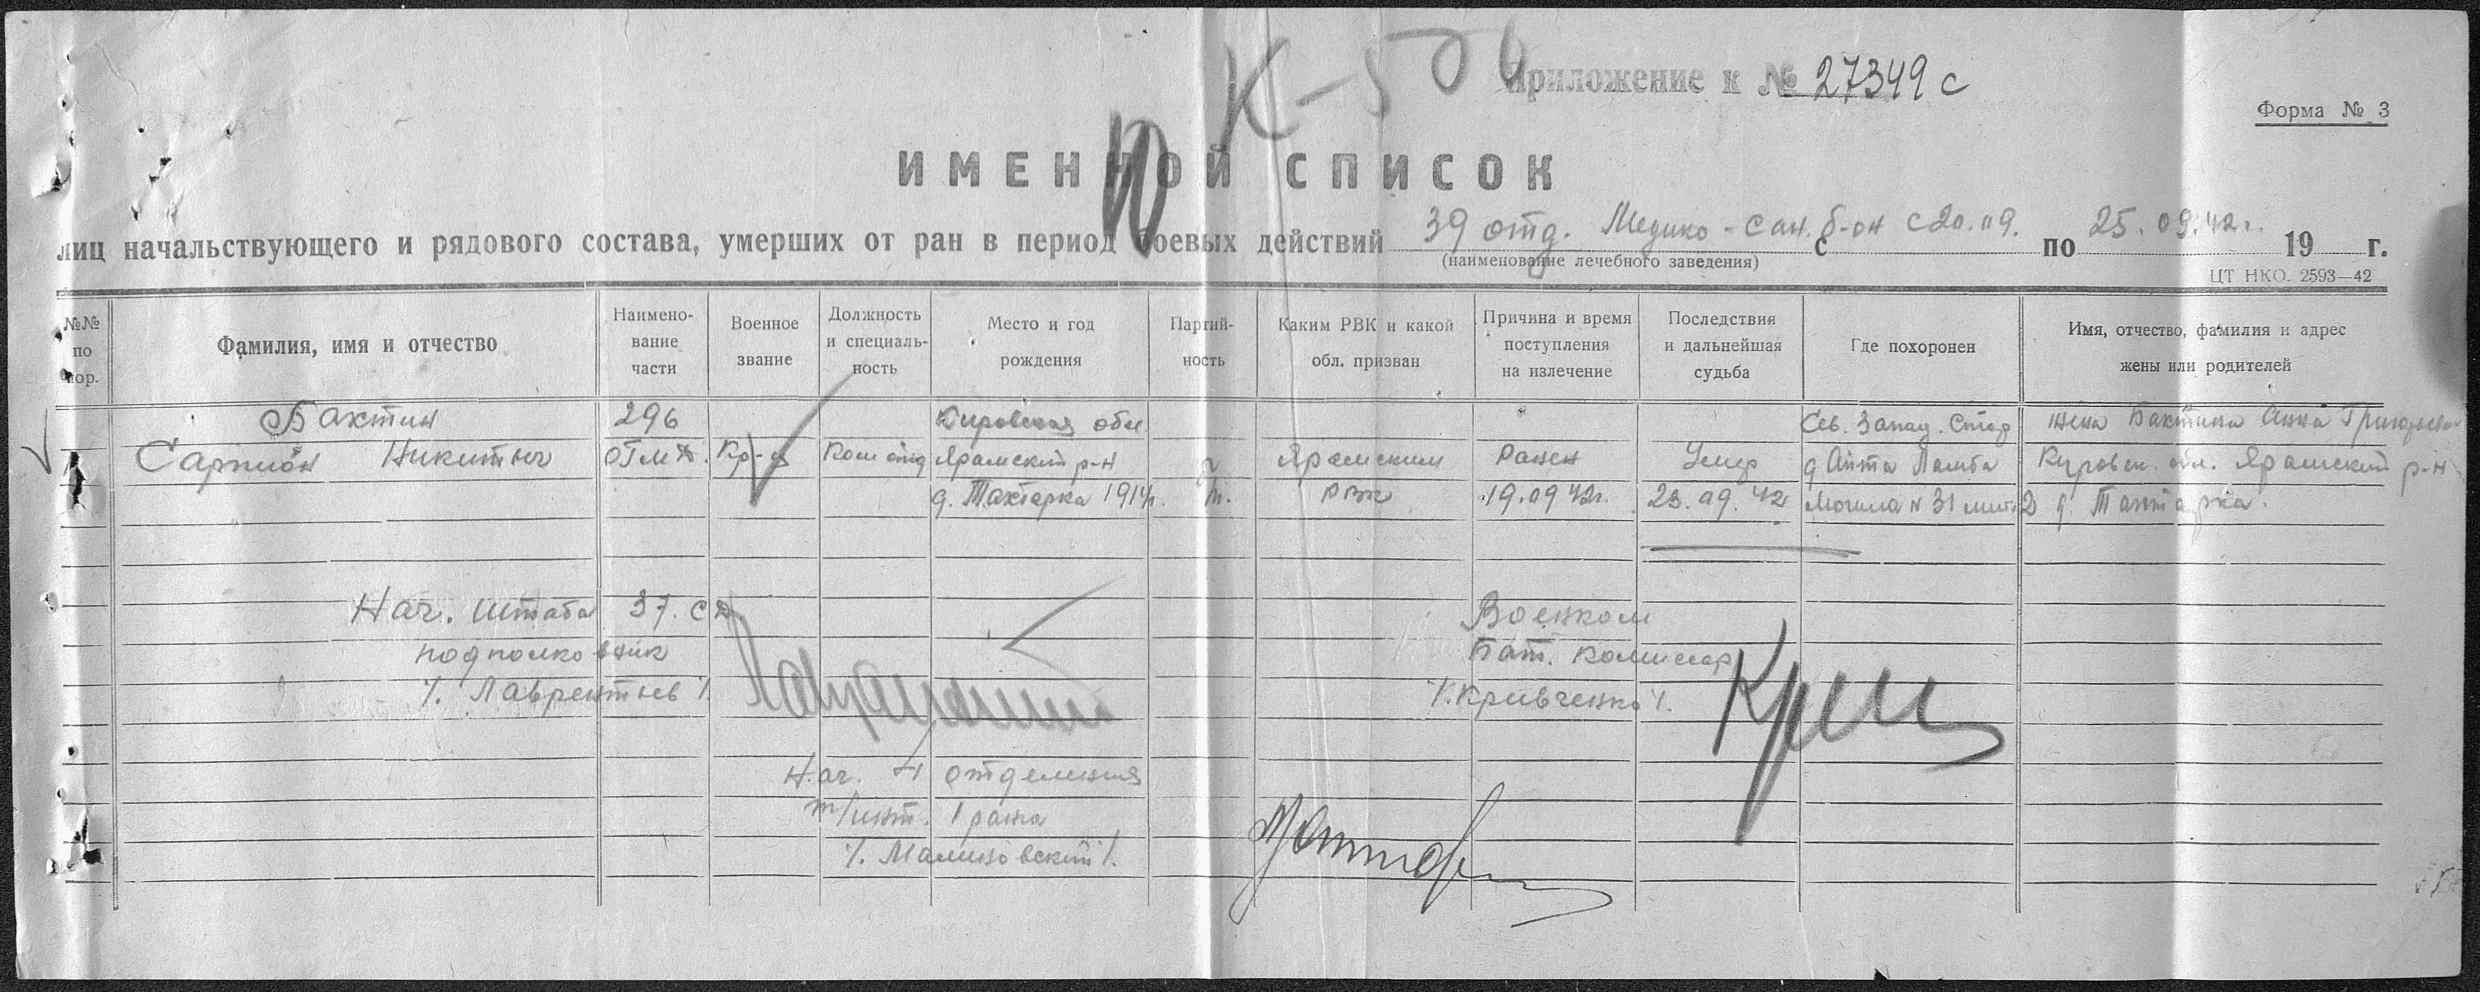 К-506
Приложение к № 27349 с
Форма № 3
ИМЕННОЙ СПИСОК
лиц начальствующего и рядового состава, умерших от ран в период боевых действий 39 отд. Медико-сан. б-он с с 20.09. по 25.09.42г. 19 г.
(наименование лечебного заведения)
ЦТ НКО. 2593—42
№№ по пор.
Фамилия, имя и отчество
Наименование части
Военное звание
Должность и специальность
Место и год рождения
Партийность
Каким РВК и какой обл. призван
Причина и время поступления на излечение
Последствия и дальнейшая судьба
Где похоронен
Имя, отчество, фамилия и адрес жены или родителей
Бахтин 296 Кировская обл. Сев. Запад. Стор жена Бахтина Анна Григорьевна
Никитич Кр-ц Ком отд Яранский р-н Яранским Ранен Умер Кировск. обл. Яранский р-н
д. Тахтарка 1914г. РВК 19.09.42г. 23.09.42 Могила N 31 д. Тахтарка.
Нач. Штаба 37. сд Военком
подполковник Бат. Комиссар
/. Лаврентьев /. /. Кривченко /.
Нач. 4 отделения
т/инт. 1 ранга
/. Малиновский /.